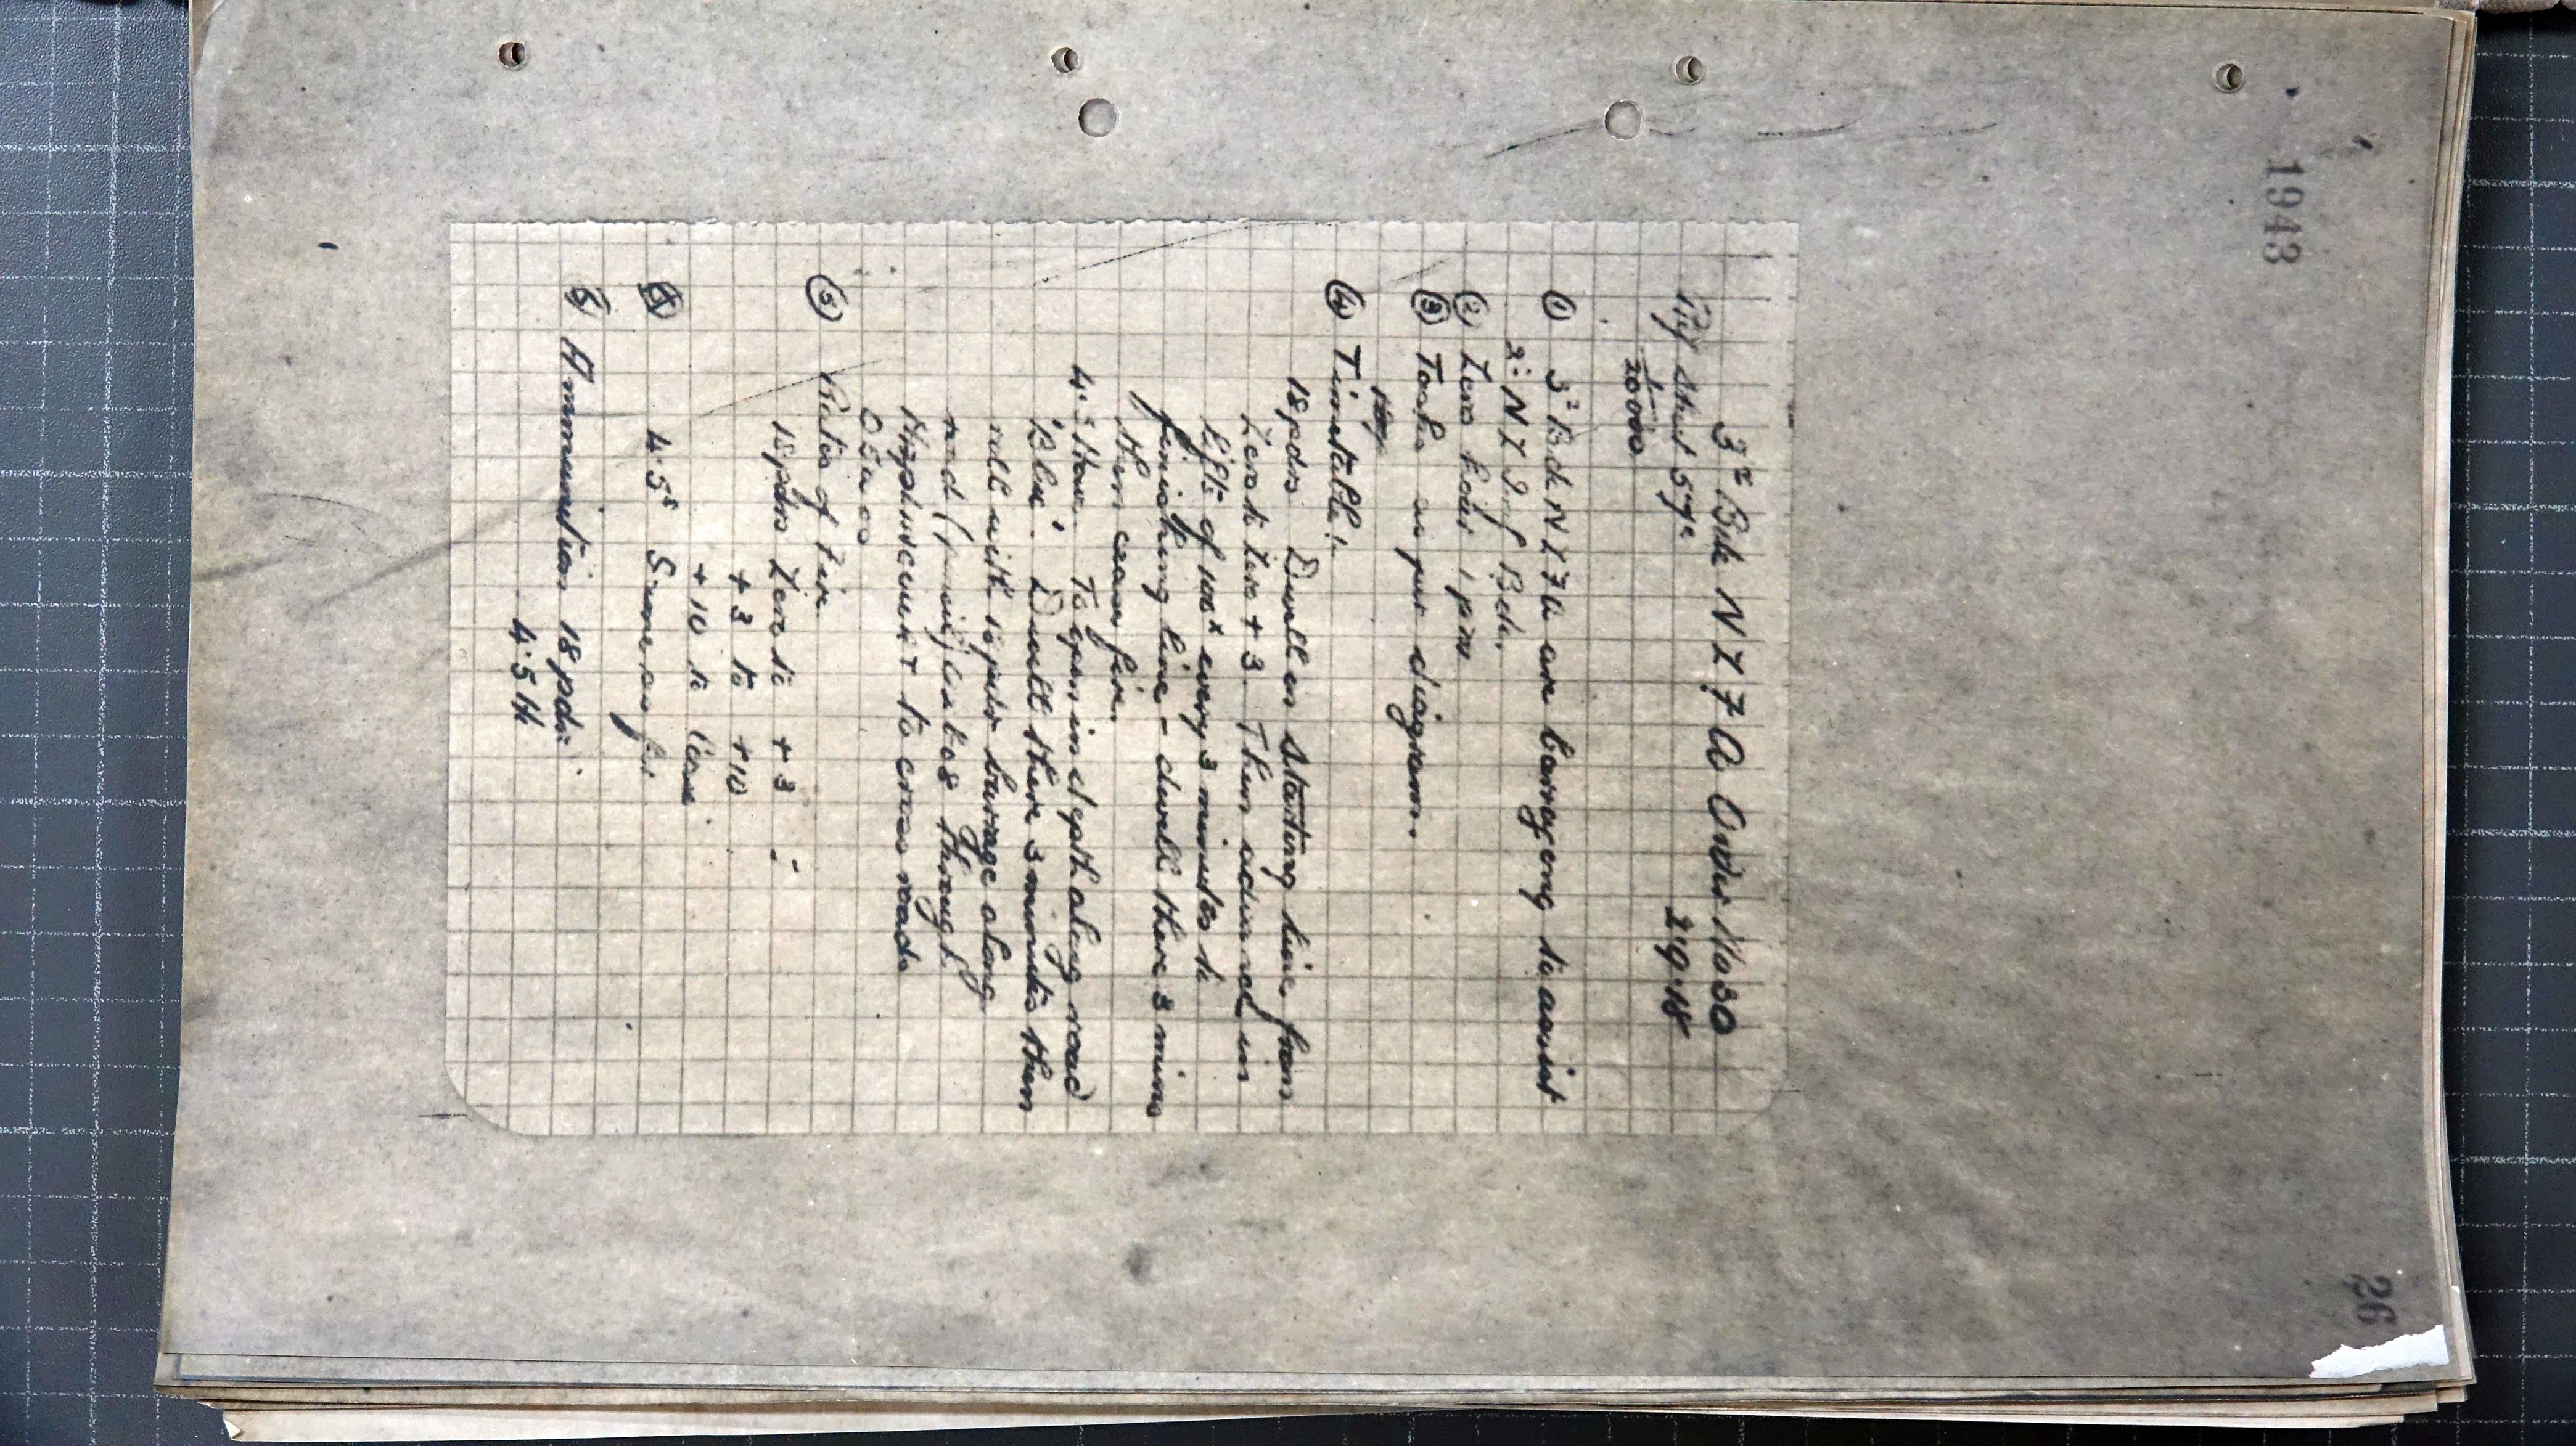 1943
26
3rd Bde N Z F A Order No 30
Ref Sheet 57c 2.9.18
1/20000
① 3rd Bde N Z F A are barraging to assist
2nd N Z Inf Bde.
② Zero hour 1 pm
③ Tasks as per diagram.
④ Timetable:
18 pdrs Dwell on starting line from
Zero to Zero + 3. Then advance in
lifts of 100x every 3 minutes to
finishing line - dwell there 3 mins
then cease fire.
4.5 Hows. To open in depth along road
'Blue'. Dwell there 3 minutes then
roll with 18 pdr barrage along
road ( through
to cross roads
O5a
⑤ Rates of Fire
18 pdrs Zero to + 3 :-
+ 3 to + 10
+ 10 to Cease
4.5s Same as for
6 Ammunition 18 pdr:
4.5 H